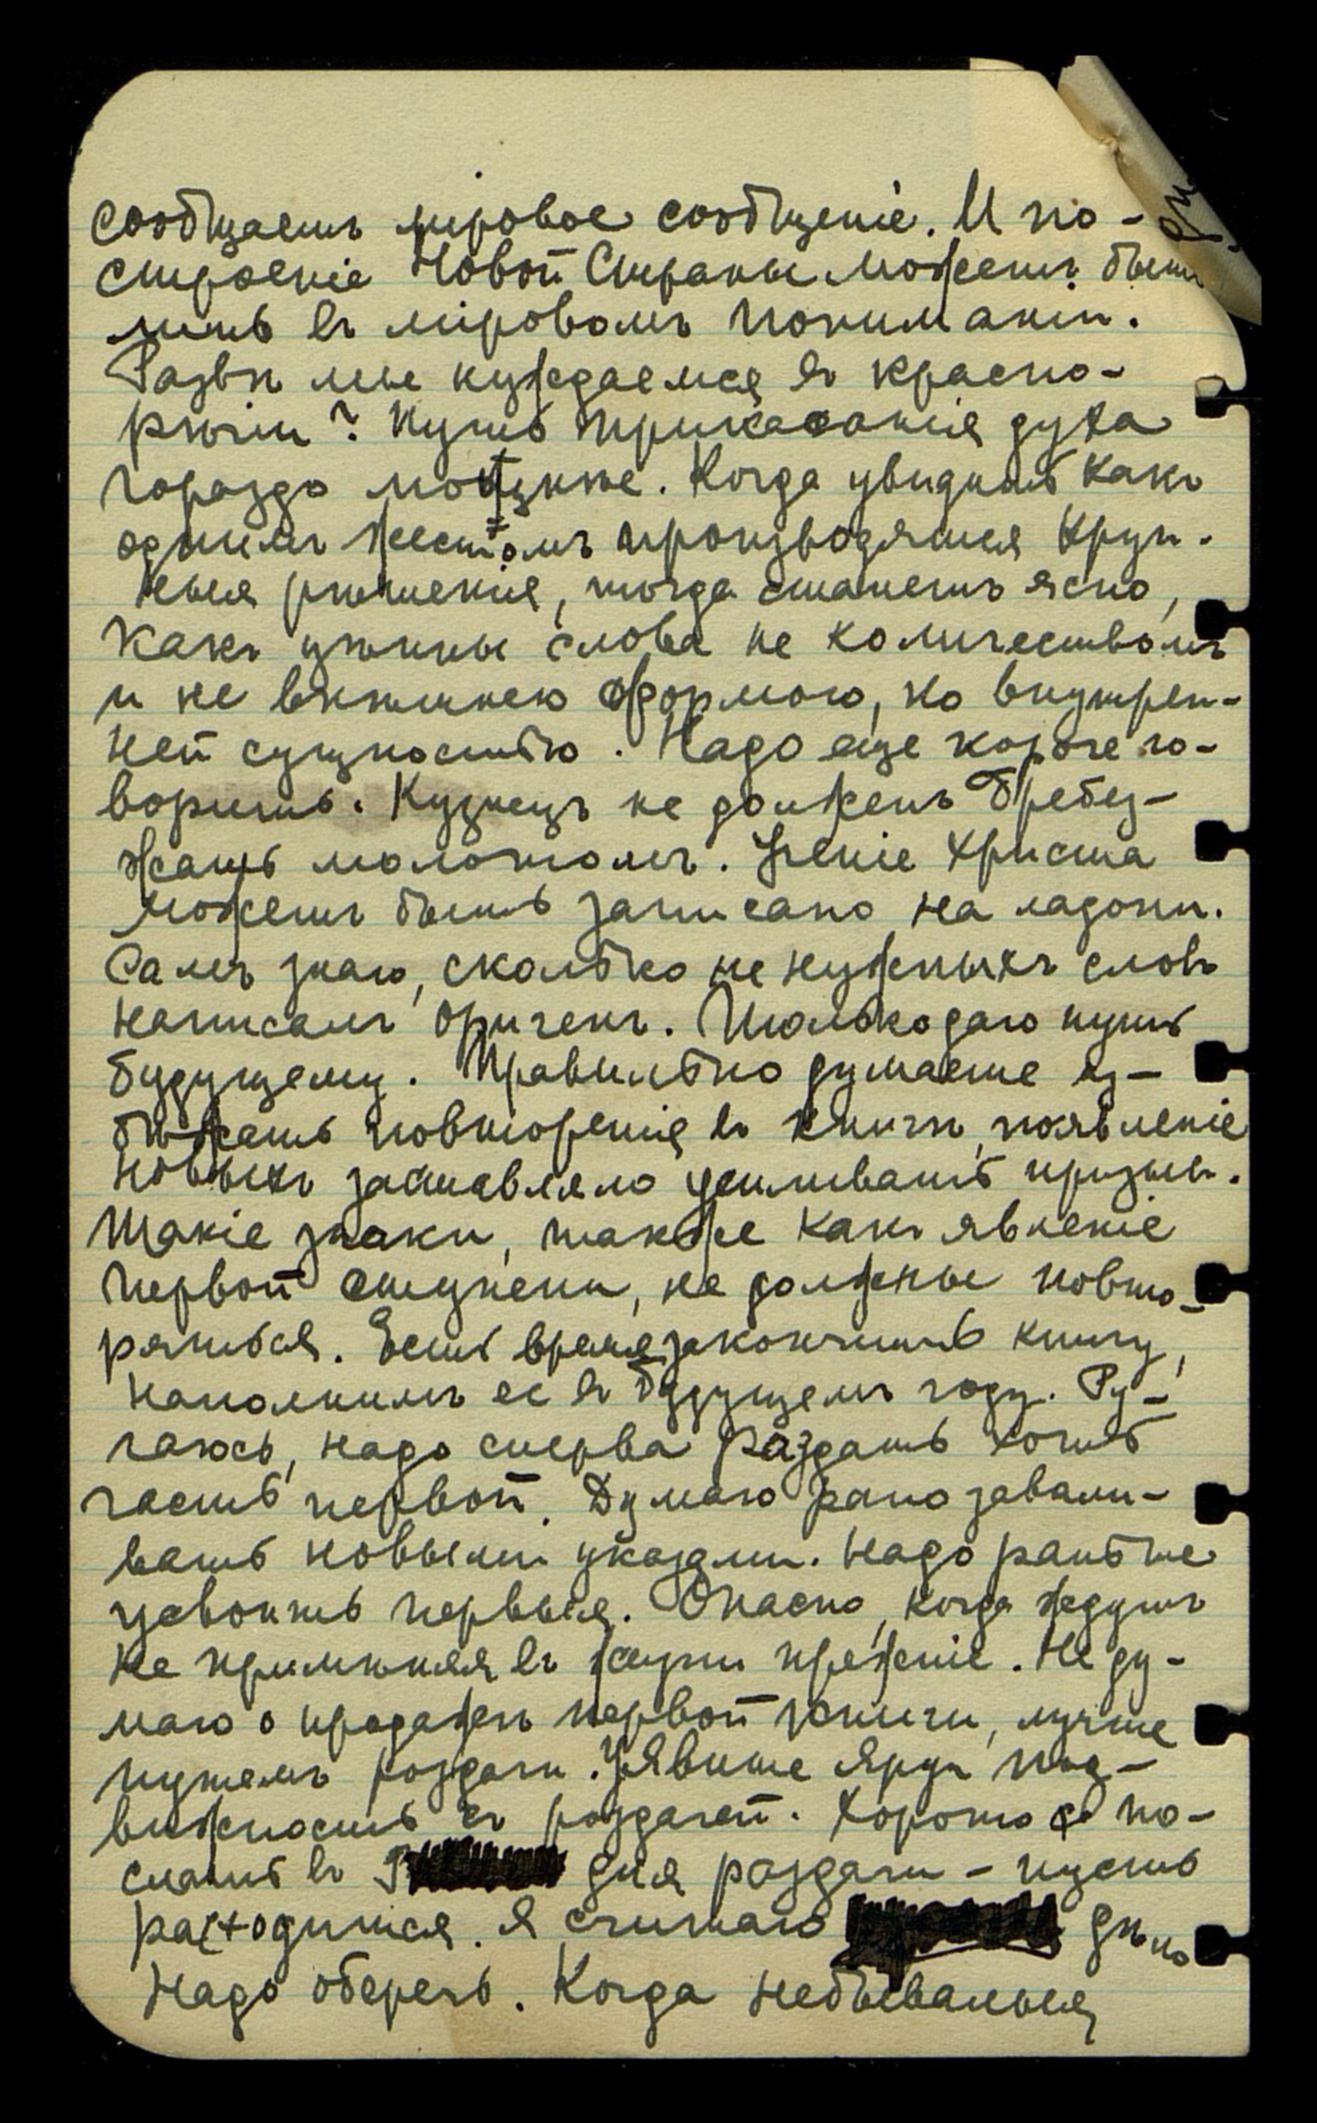 сообщаетъ міровое сообщеніе. И по-
строеніе Новой Страны можетъ быть
лишь въ міровомъ пониманіи.
Развѣ мы нуждаемся въ красно-
рѣчіи? Путь прикасанія духа
гораздо мощнѣе. Когда увидишь какъ
однимъ жестомъ производятся круп-
ныя рѣшенія, тогда станетъ ясно,
какъ цѣнны слова не количествомъ
и не внѣшнею формою, но внутрен-
ней сущностью. Надо еще короче го-
ворить. Кузнецъ не долженъ бребез-
жать молоткомъ. Ученіе Христа
можетъ быть записано на ладони.
Самъ знаю, сколько не нужныхъ словъ
написалъ Оригенъ. Только даю путь
будущему. Правильно думаете из-
бѣжать повторенія въ книгѣ, появленіе
новыхъ заставляло усиливать призывъ.
Такіе знаки, также какъ явленіе
первой ступени, не должны повто-
ряться. Есть время закончить книгу,
наполнимъ ее въ будущемъ году. Ру-
гаюсь, надо сперва раздать хоть
часть первой. Думаю рано завали-
вать новыми указами. Надо раньше
усвоить первыя. Опасно, когда ждутъ
не примѣняя въ жизни прежніе. Не ду-
маю о продажѣ первой книги, лучше
путемъ раздачи. Уявите яруя под-
вижность съ раздачей. Хорошо по-
слать въ для раздачи – пусть
расходится. Я считаю дѣло
надо оберечь. Когда небывалыя